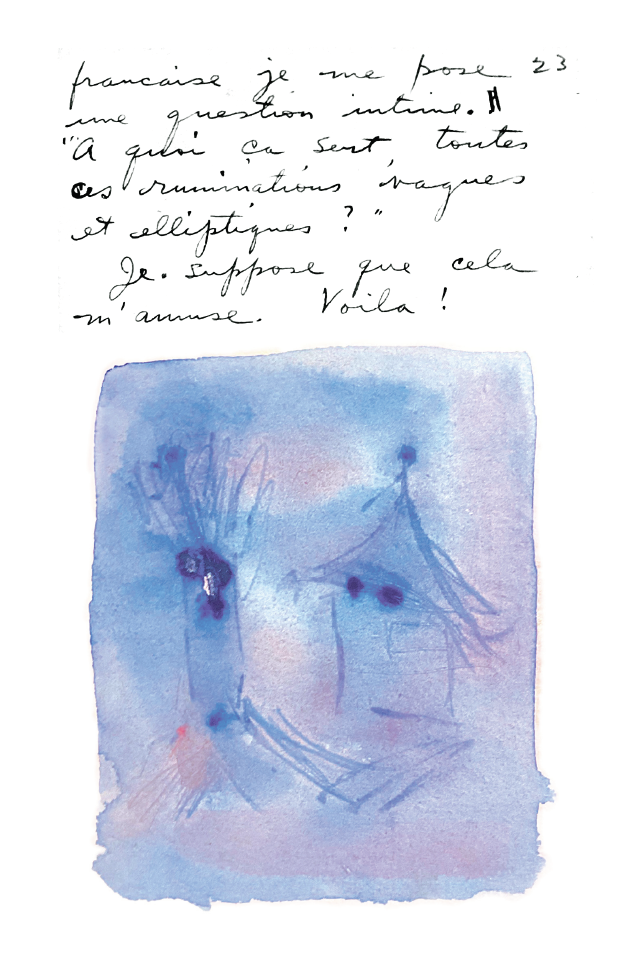 francaise je me pose 23
une question intime.
"A quoi ça sert, toutes
ces ruminations vagues
et elliptiques ? "
Je. suppose que cela
m'amuse. Voila !